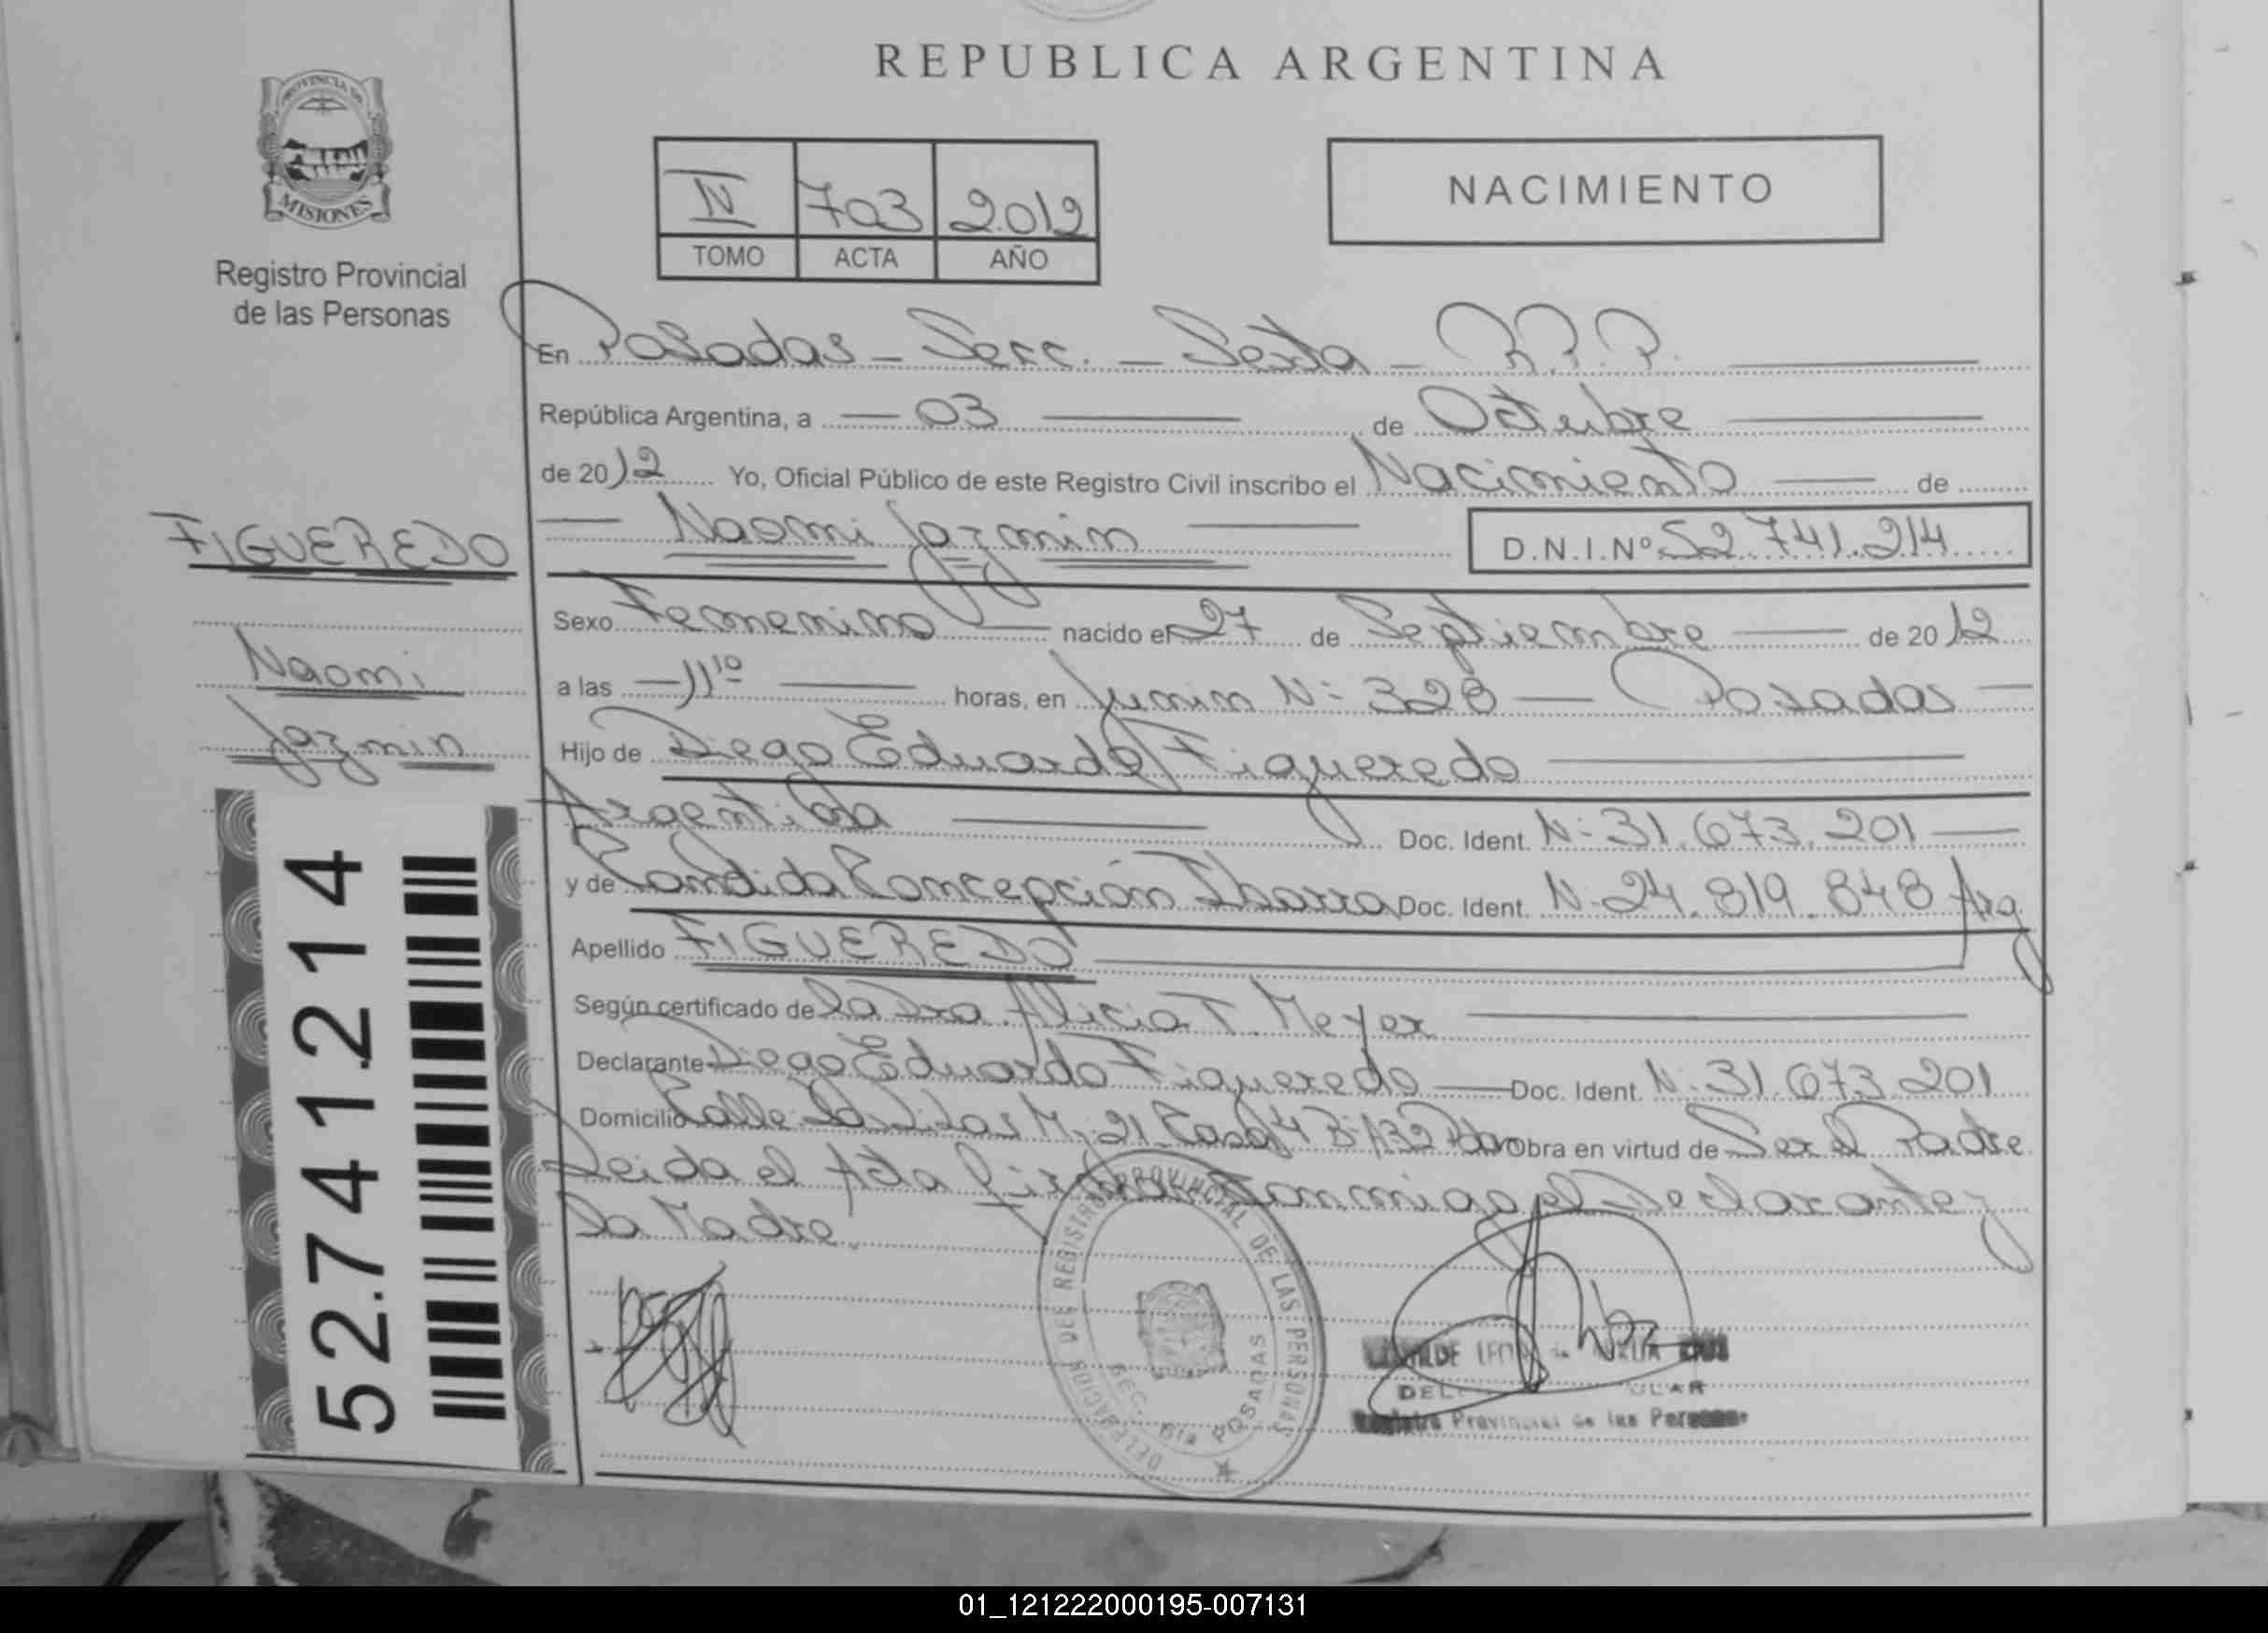 REPUBLICA ARGENTINA
PROVINCIA DE
MISIONES
Registro Provincial
de las Personas
IV 703 2012
TOMO ACTA AÑO
NACIMIENTO
En Posadas - Secc. - Sexta - R.P.P.
República Argentina, a 03 de Octubre
de 2012 Yo, Oficial Público de este Registro Civil inscribo el Nacimiento de
Naomi Jazmin D.N.I.Nº 52.741.214
FIGUEREDO
Naomi
Jazmin
52.741.214
Sexo Femenino nacido el 27 de Septiembre de 2012
a las 11¹⁰ horas, en Junin Nº 328 - Posadas
Hijo de Diego Eduardo Figueredo
Doc. Ident. Nº 31.673.201
y de Candida Concepción Ibarra Doc. Ident. Nº 24.819.848 Arg
Apellido FIGUEREDO
Según certificado de la Dra. Alicia T. Meyer
Declarante Diego Eduardo Figueredo Doc. Ident. Nº 31.673.201
Domicilio Calle 21 Casa Obra en virtud de Ser el Padre
Leida el Acta el Declarante y
la Madre.
DEL REGISTRO PROVINCIAL DE LAS PERSONAS
SEC. 6ta POSADAS
Registro Provincial de las Personas
01_121222000195-007131